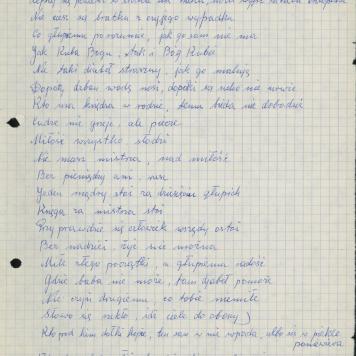 Nie ciesz się bratku z czyjego wypadku
Co głupiemu po rozumie, jak go sam nie ma
Jak Kuba Bogu, tak i Bóg Kubie
Nie taki diabeł straszny, jak go malują
Dopóty dzban wodę nosi, dopóki się ucho nie urwie
Kto ma księdza w rodzie, temu bieda nie dobodzie
Cudze nie grzeje, ale piecze
Miłość wszystko słodzi
Nie masz mistrza, nad miłość
Bez pieniędzy ani, rusz
Jeden mądry stoi za dziesięciu głupich
Księga za mistrza stoi
Przy prawdzie się człowiek wszędy ostoi
Bez nadziei, żyć nie można
Miłe złego początki, a głupiemu radość
Gdzie baba nie może, tam djabeł pomoże
Nie czyń drugiemu, co tobie niemiłe
Słowo się rzekło,
Kto pod kim dołki kopie, ten sam w nie wpada, albo się w piekle
poniewiera